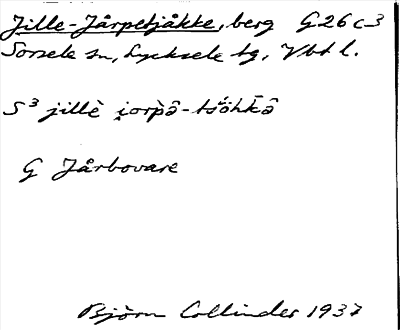 Jille-Jårpetjåkke, berg G26c3
Sorsele sn, Lycksele tg, Vbt l.
S³ jillè i̯orpå̂-tsöhkå̂
G Jårbovare
Björn Collinder 1937